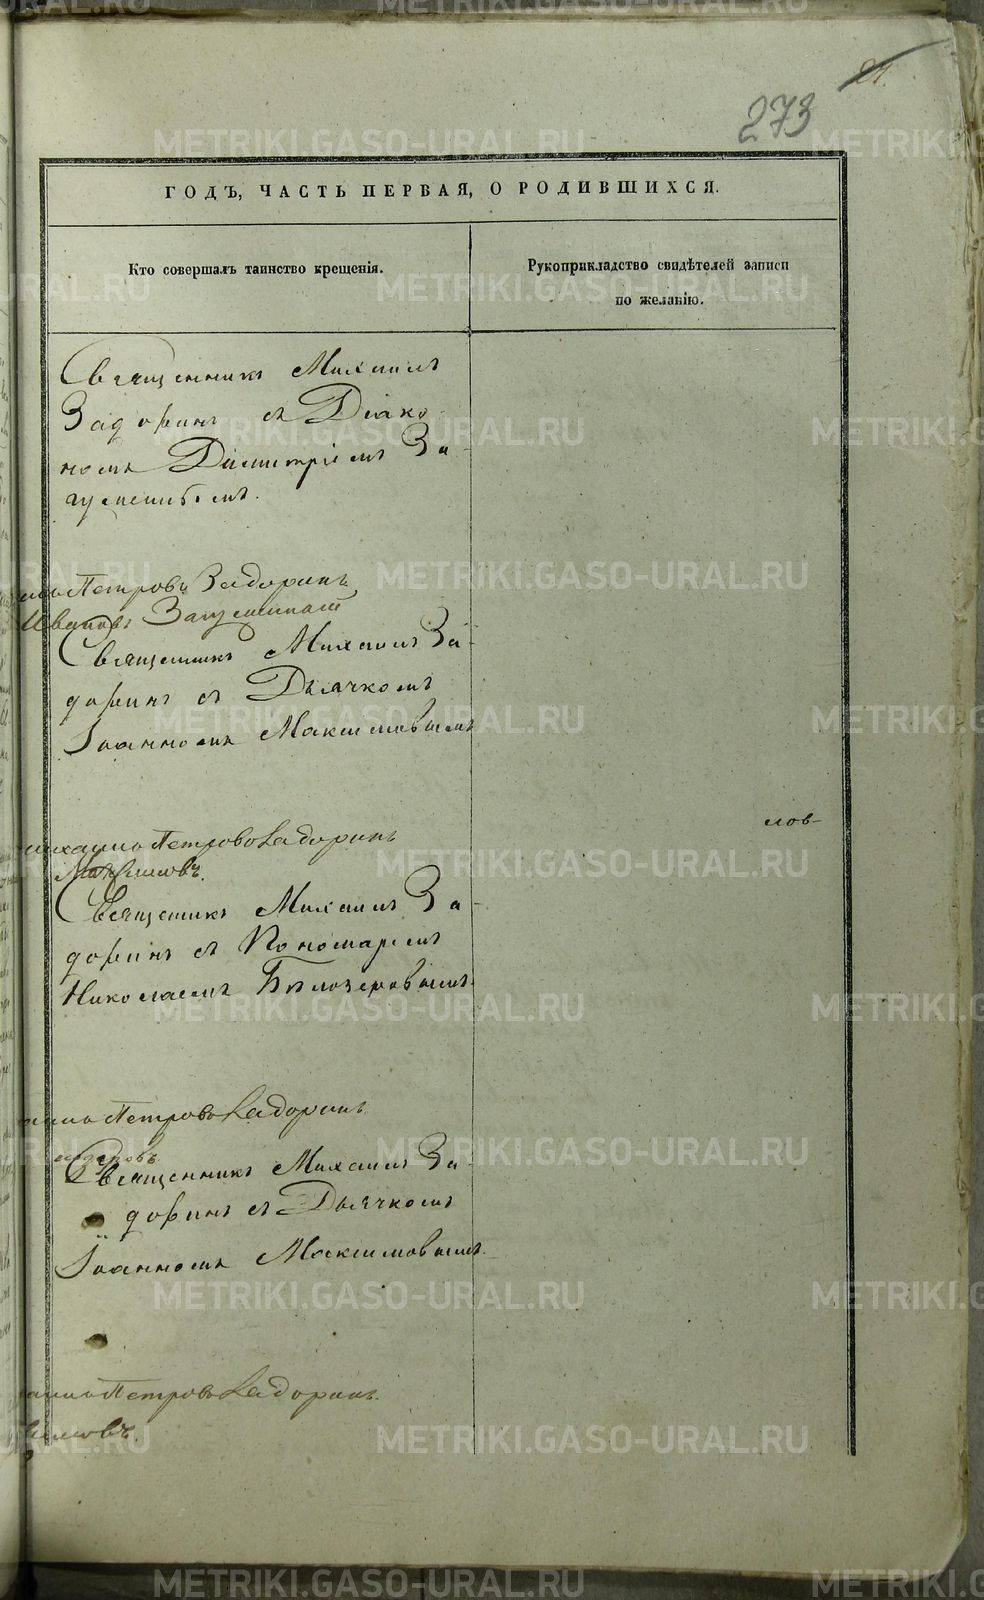 21.
273
ГОДЪ, ЧАСТЬ ПЕРВАЯ, О РОДИВШИХСЯ.
Кто совершалъ таинство крещенія.
Рукоприкладство свидѣтелей записи
по желанію.
Священникъ Михаилъ
Задоринъ съ Діако-
номъ Димитріемъ За-
Петровъ Задоринъ
Ивановъ
Священникъ Михаилъ За-
доринъ съ Дьячкомъ
Іоанномъ Максимовымъ
лов-
Михаило Петрово Задоринъ
Максимовъ.
Священникъ Михаилъ За-
доринъ съ Пономаремъ
Николаемъ Бѣлозеровымъ.
Петрово Задоринъ
Священникъ Михаилъ За-
доринъ съ Дьячкомъ
Іоанномъ Максимовымъ.
Петрово Задоринъ.
METRIKI.GASO-URAL.RU